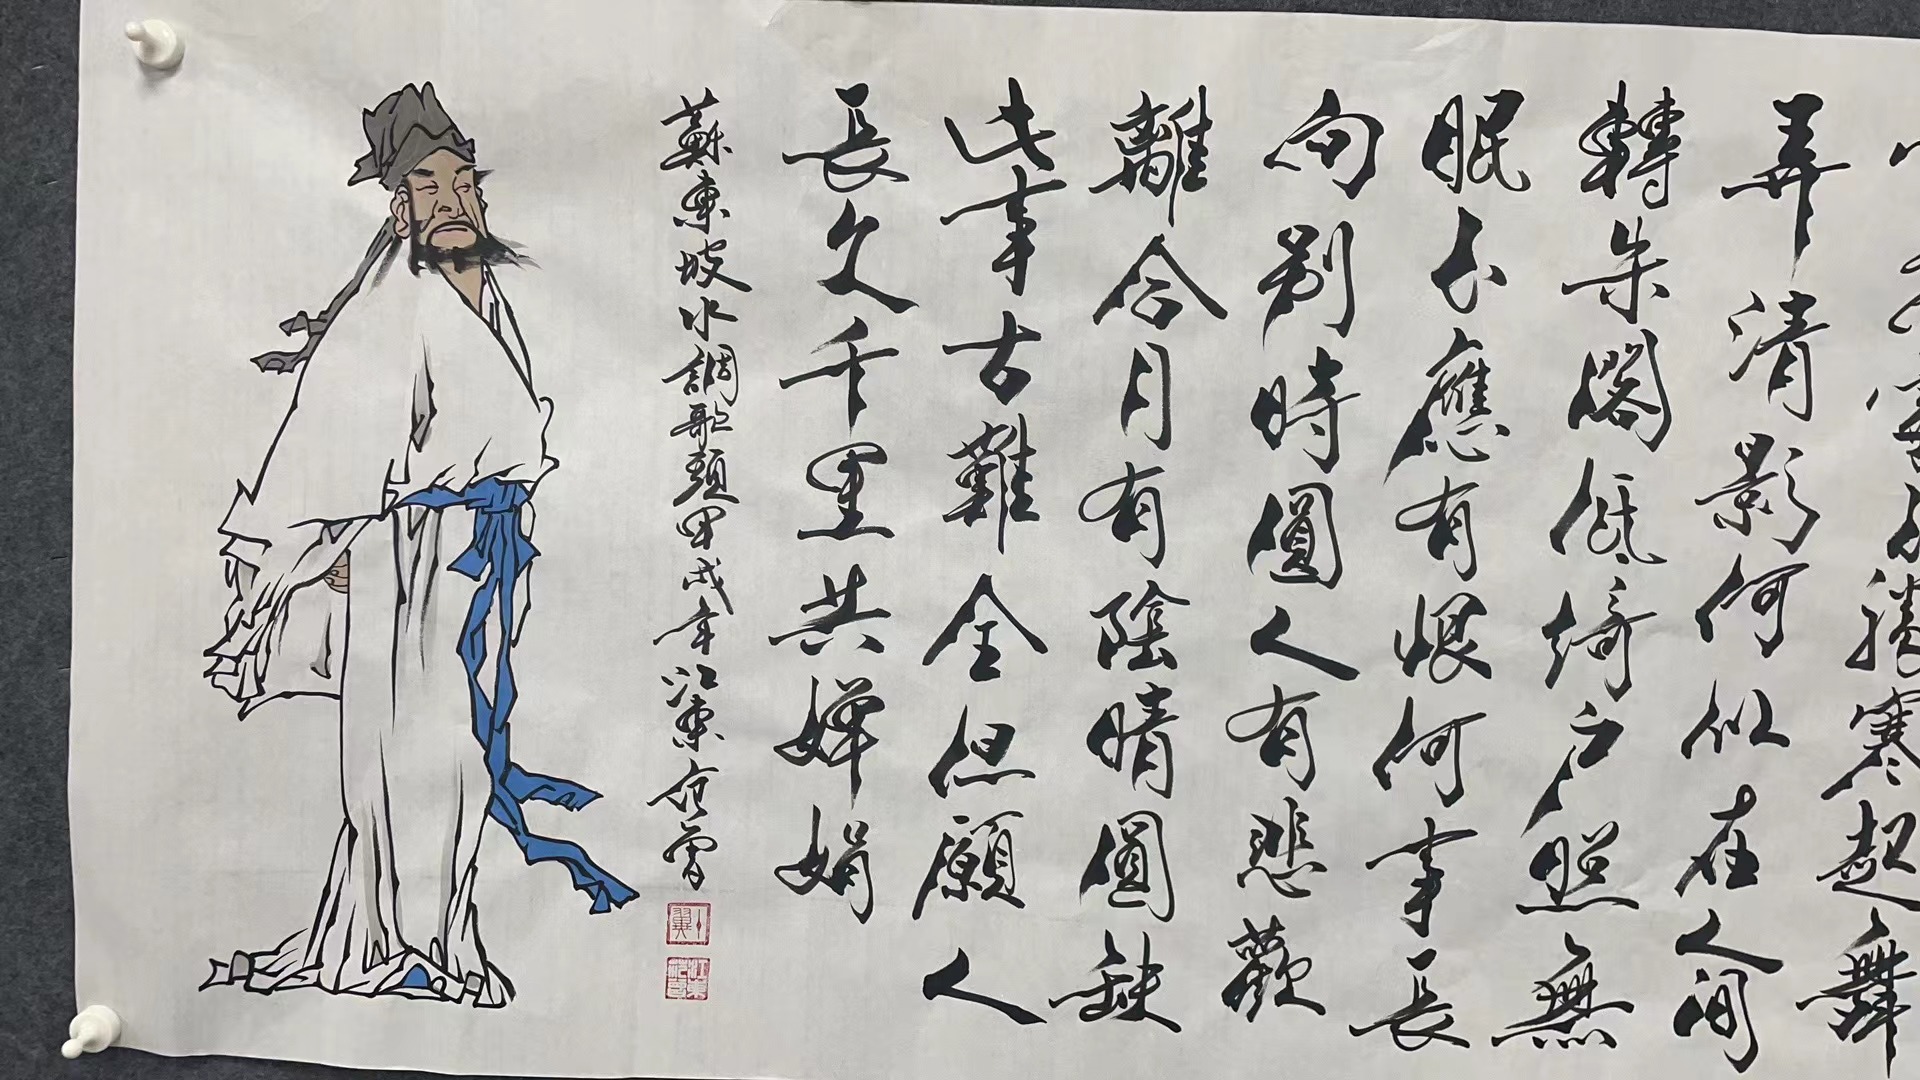 勝寒起舞
弄清影何似在人间
轉朱閣低綺户照無
眠不應有恨何事長
向别時圓人有悲歡
離合月有陰晴圓缺
此事古難全但願人
長久千里共嬋娟
蘇東坡水調歌頭甲戌年江東范曾
十翼
江東范曾